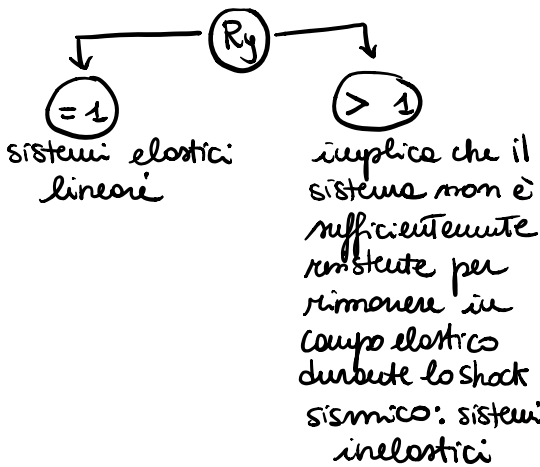 Ry
= 1
> 1
sistemi elastici
lineari
implica che il
sistema non è
sufficientemente
resistente per
rimanere in
campo elastico
durante lo shock
sismico: sistemi
inelastici